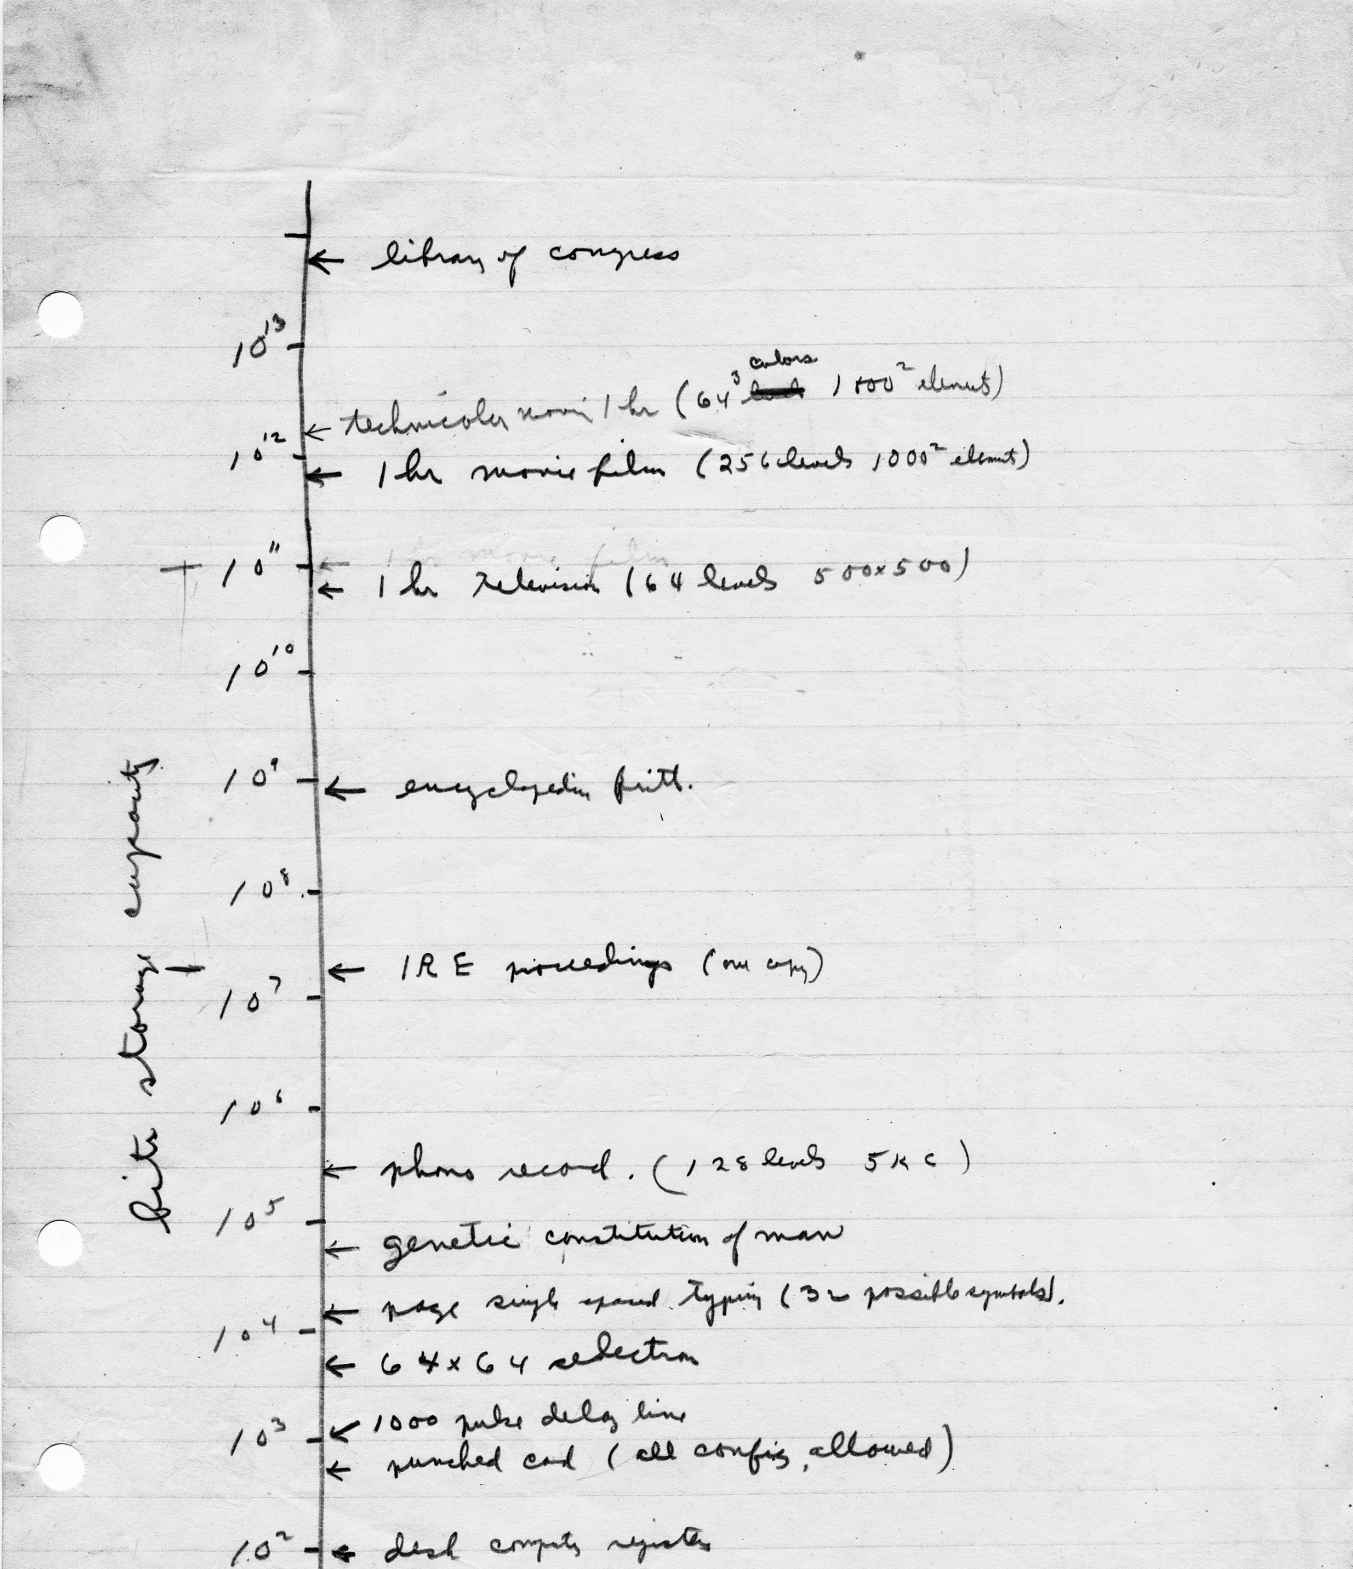 library of congress
10¹³
colors
technicolor movie 1 hr (64³ 1000² elements)
10¹²
1 hr movie film (256 levels 1000² elements)
1 hr movie film
10¹¹
1 hr television (64 levels 500x500)
10¹⁰
10⁹
encyclopedia britt.
10⁸
IRE proceedings (one copy)
10⁷
10⁶
phono record. (128 levels 5KC)
10⁵
genetic constitution of man
page single spaced typing (32 possible symbols).
10⁴
64x64 selectron
1000 pulse delay line
10³
punched card (all config. allowed)
10²
desk register
bits storage capacity